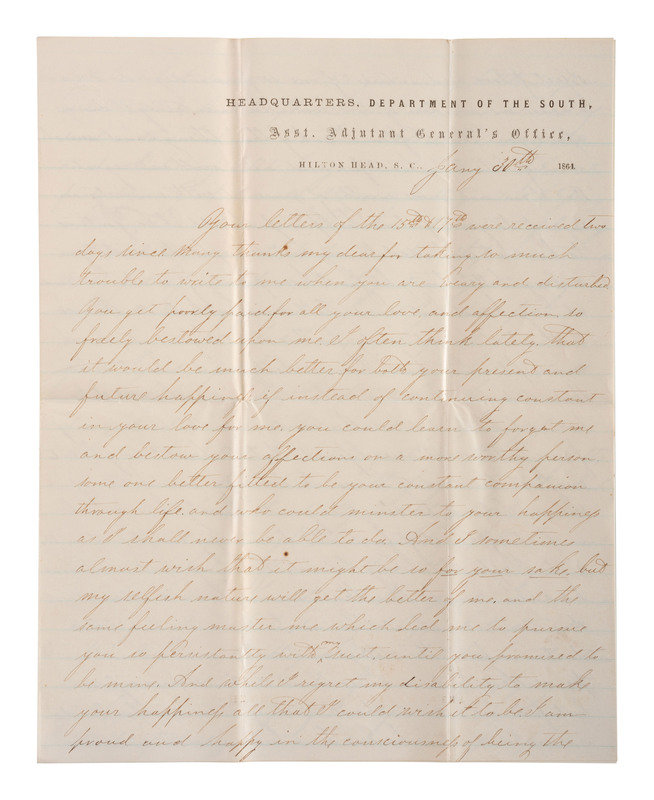 HEADQUARTERS, DEPARTMENT OF THE SOUTH,
Asst. Adjutant General's Office,
HILTON HEAD, S. C., Jany 30th 1864.
Your letters of the 15th & 17th were received two
days since Many thanks my dear for taking so much
trouble to write to me when you are weary and disturbed
You get poorly paid for all your love, and affection, so
freely bestowed upon me, I often think lately, that
it would be much better for both your present and
future happiness if instead of continuing constant
in your love for me, you could learn to forget me
and bestow your affections on a more worthy person
some one better fitted to be your constant companion
through life, and who could minister to your happiness
as I shall never be able to do. And I sometimes
almost wish that it might be so for your sake, but
my selfish nature will get the better of me, and the
same feeling master me which led me to pursue
you so persistantly with my suit, until you promised to
be mine. And while I regret my disability to make
your happiness, all that I could wish it to be, I am
proud and happy in the consciousness of being the